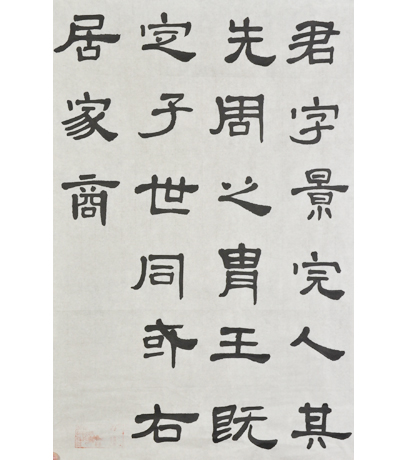 君字景完人其
先周之胄王既
定子世同或右
居家商